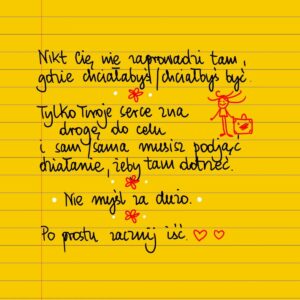 Nikt Cię nie zaprowadzi tam,
gdzie chciałabyś/chciałbyś być.
Tylko Twoje serce zna
drogę do celu
i sam/sama musisz podjąć
działanie, żeby tam dotrzeć.
Nie myśl za dużo.
Po prostu zacznij iść.